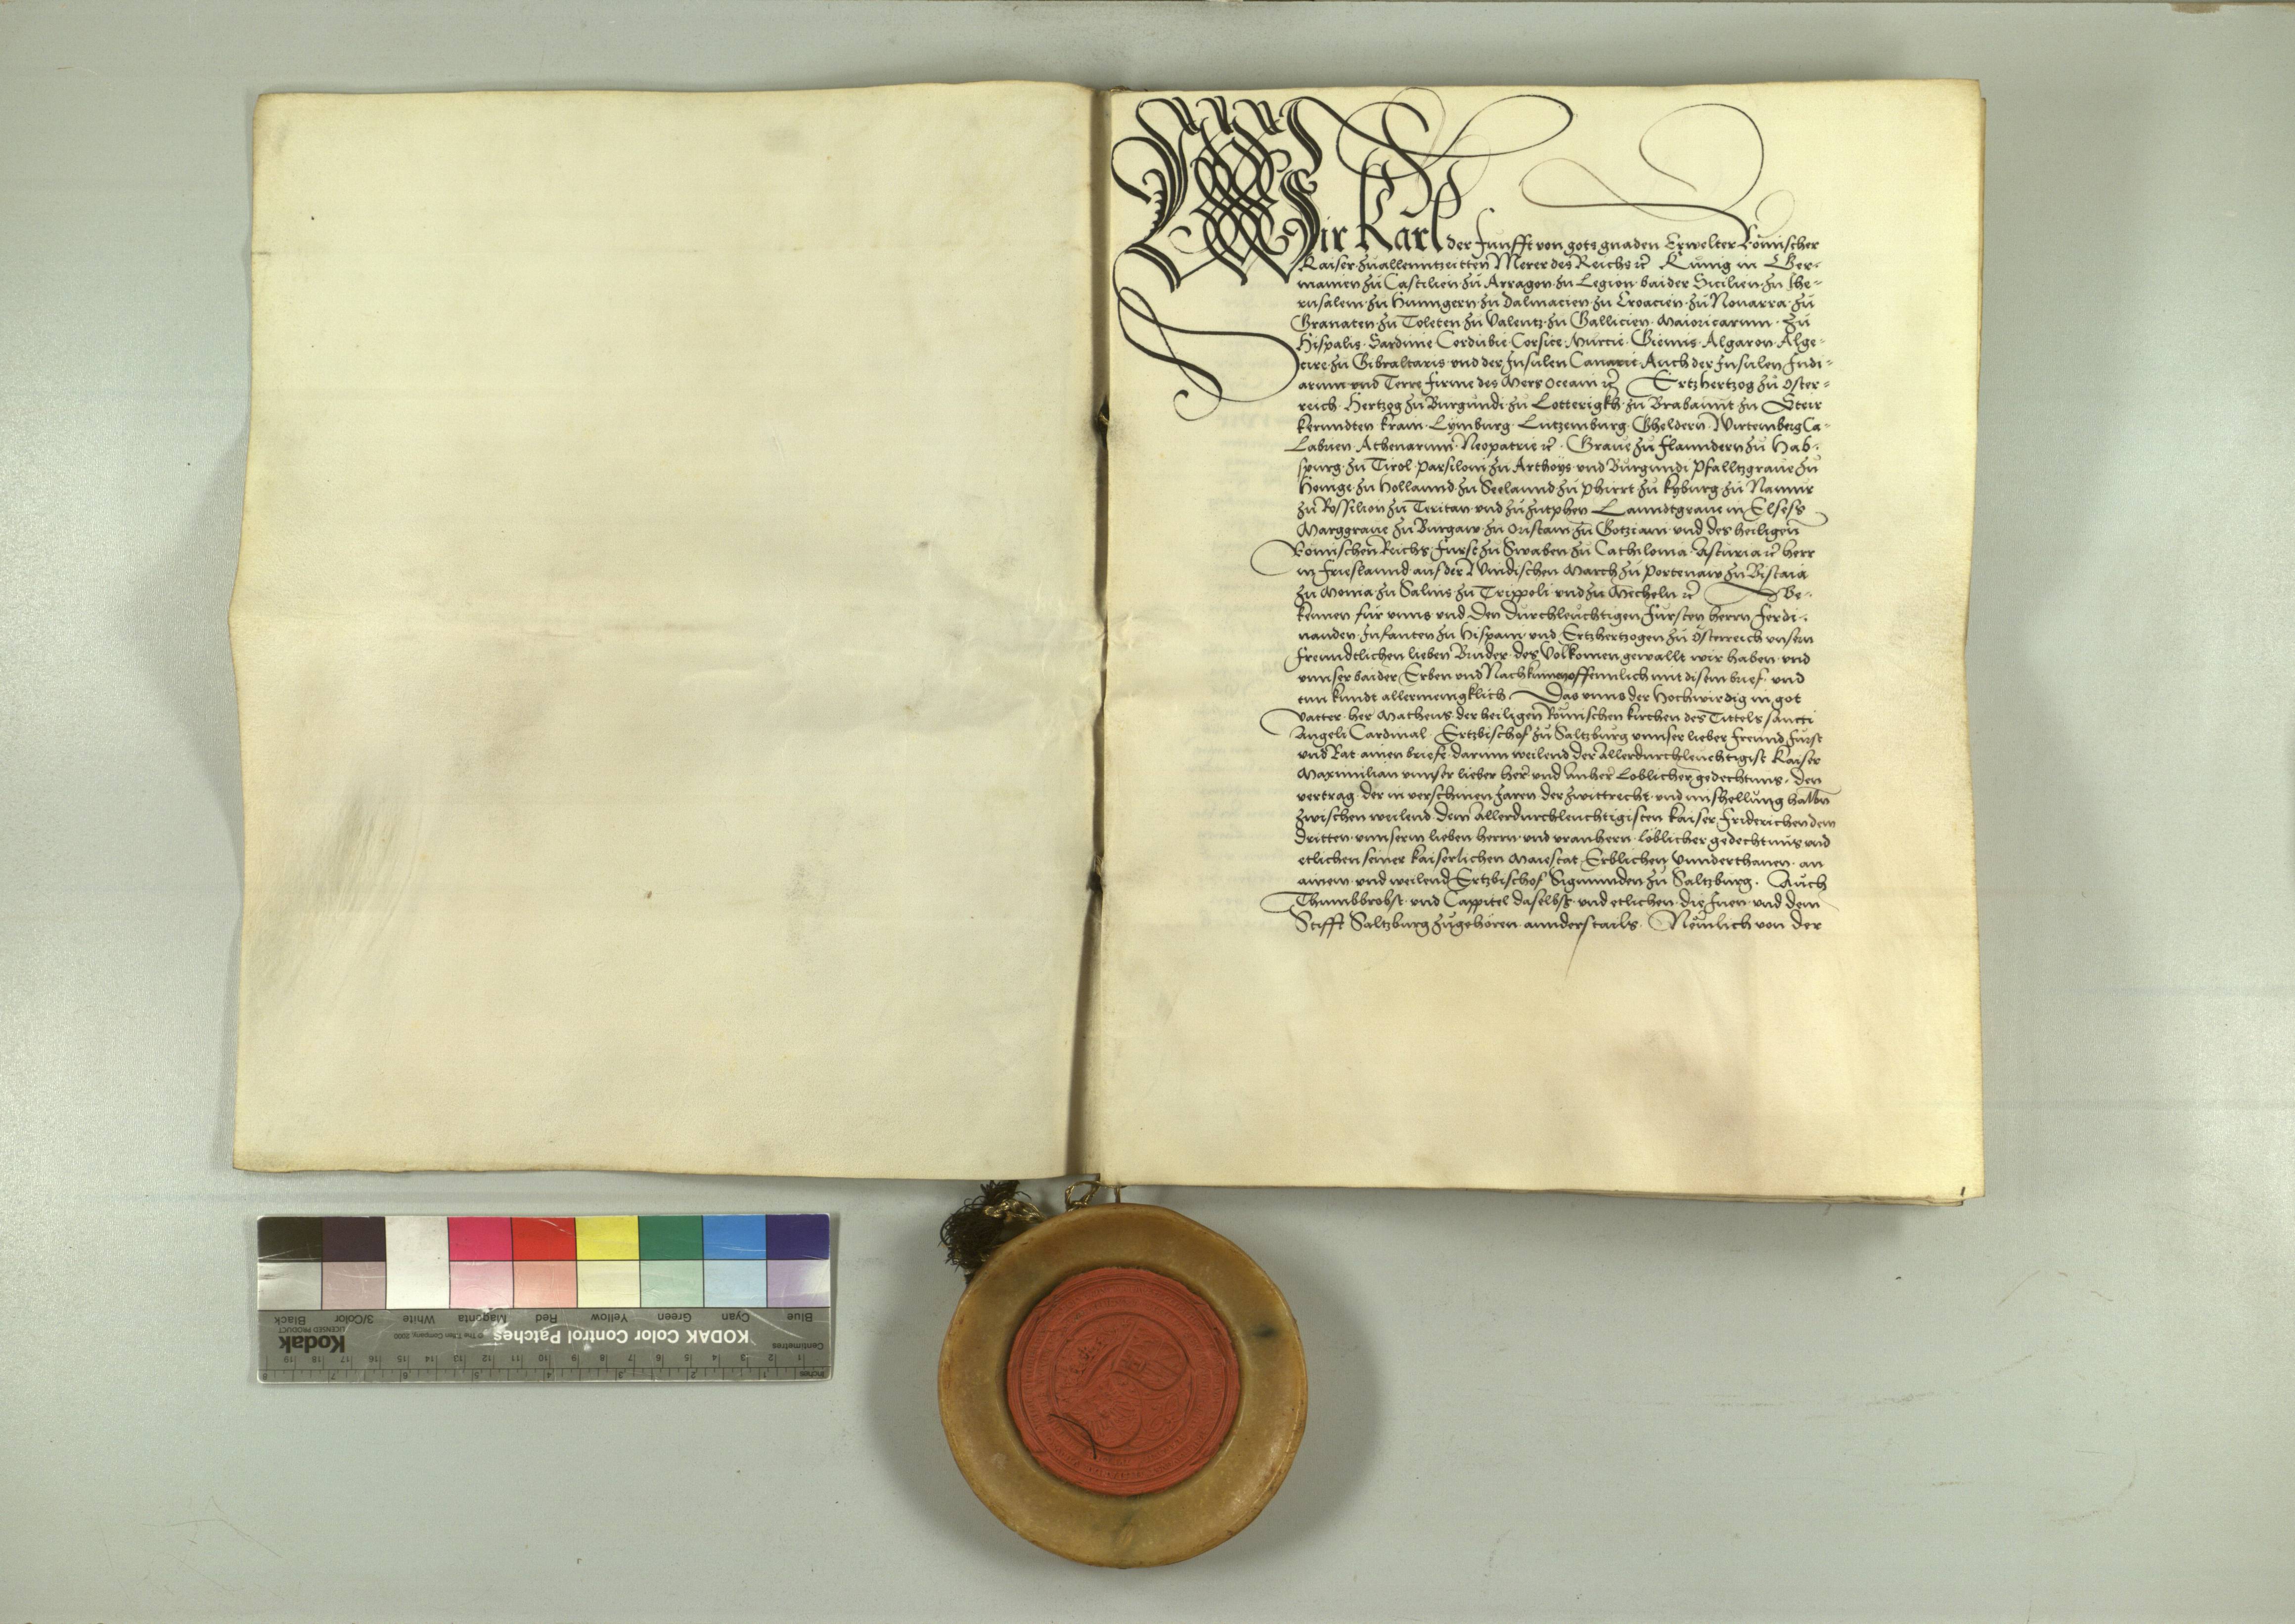 Wir Karl der Funfft von gots gnaden Erwelter Römischer
Kaiser zuallenntzeitten Merer des Reichs ꝛc Kunig in Ger-
manien zu Castilien zu Arragon zu Legion baider Sicilien zu Jhe-
rusalem zu Hunngern zu Dalmacien zu Croacien zu Nouarra zu
Granaten zu Toleten zu Valentz zu Gallicien Maioricarum zu
Hispalis Sardinie Cordubie Corsice Murcie Giennis Algaron Alge-
cire zu Gibraltaris vnd der Insulen Canarie Auch der Insulen Indi-
arum vnd Terre firme des Mers Oceani ꝛc Ertzhertzog zu Oster-
reich Hertzog zu Burgundi zu Lotterigkh zu Brabannt zu Steir
kernndten Krain Lymburg Lutzemburg Gheldern Wirtemberg Ca-
labrien Athenarum Neopatrie ꝛc Graue zu Flanndern zu Hab-
spurg zu Tirol Parsiloni zu Arthoys vnd Burgundi Pfalltzgraue zu
Henige zu Hollannd zu Seelannd zu Phirrt zu kyburg zu Namur
zu Rossilion zu Teritan vnd zu zutphen Lanndtgraue in Elsess
Marggraue zu Burgaw zu Oristani zu Gotziani vnd des heiligen
Römischen Reichs Furst zu Swaben zu Cathilonia Asturia ꝛc herr
in Frieslannd auf der Windischen March zu Portenaw zu Biscaia
zu Monia zu Salins zu Trippoli vnd zu Micheln ꝛc Be-
kennen für vnns vnd den durchleuchtigen Fürsten herrn Ferdi-
nanden Infanten zu Hispani vnd Ertzhertzogen zu Österreich vnsern
freundtlichen lieben Bruder des Volkomen gewallt wir haben vnd
vnnser baider Erben vnd Nachkumen offennlich mit disem brief vnd
tun kundt allermenigklich Das vnns der Hochwirdig in got
Vatter her Matheus der heiligen Römischen kirchen des Tittels sancti
Angeli Cardinal Ertzbischof zu Saltzburg vnnser lieber freund Fürst
vnd Rat ainen briefe darinn weilend der Allerdurchleuchtigist Kaiser
Maximilian vnnser lieber her vnd Anher Loblicher gedechtnus den
vertrag der in verschinen Jaren der zwittrecht vnd misshellung halbn
zwischen weilend dem Allerdurchleuchtigisten kaiser Friderichen dem
dritten vnnserm lieben herrn vnd vranhern löblicher gedechtnus vnd
etlichen seiner kaiserlichen Maiestat Erblichen Vnnderthanen an
ainem vnd weilend Ertzbischof Sigmunden zu Saltzburg Auch
Thumbbrobst vnd Cappitel daselbst vnd etlichen die Inen vnd dem
Stifft Saltzburg zugehören annderstails Nemlich von der
Blue Cyan Green Yellow Red Magenta White 3/Color Black
KODAK Color Control Patches
Kodak
LICENSED PRODUCT
Centimetres
1 2 3 4 5 6 7 8 9 10 11 12 13 14 15 16 17 18 19
Inches 1 2 3 4 5 6 7 8